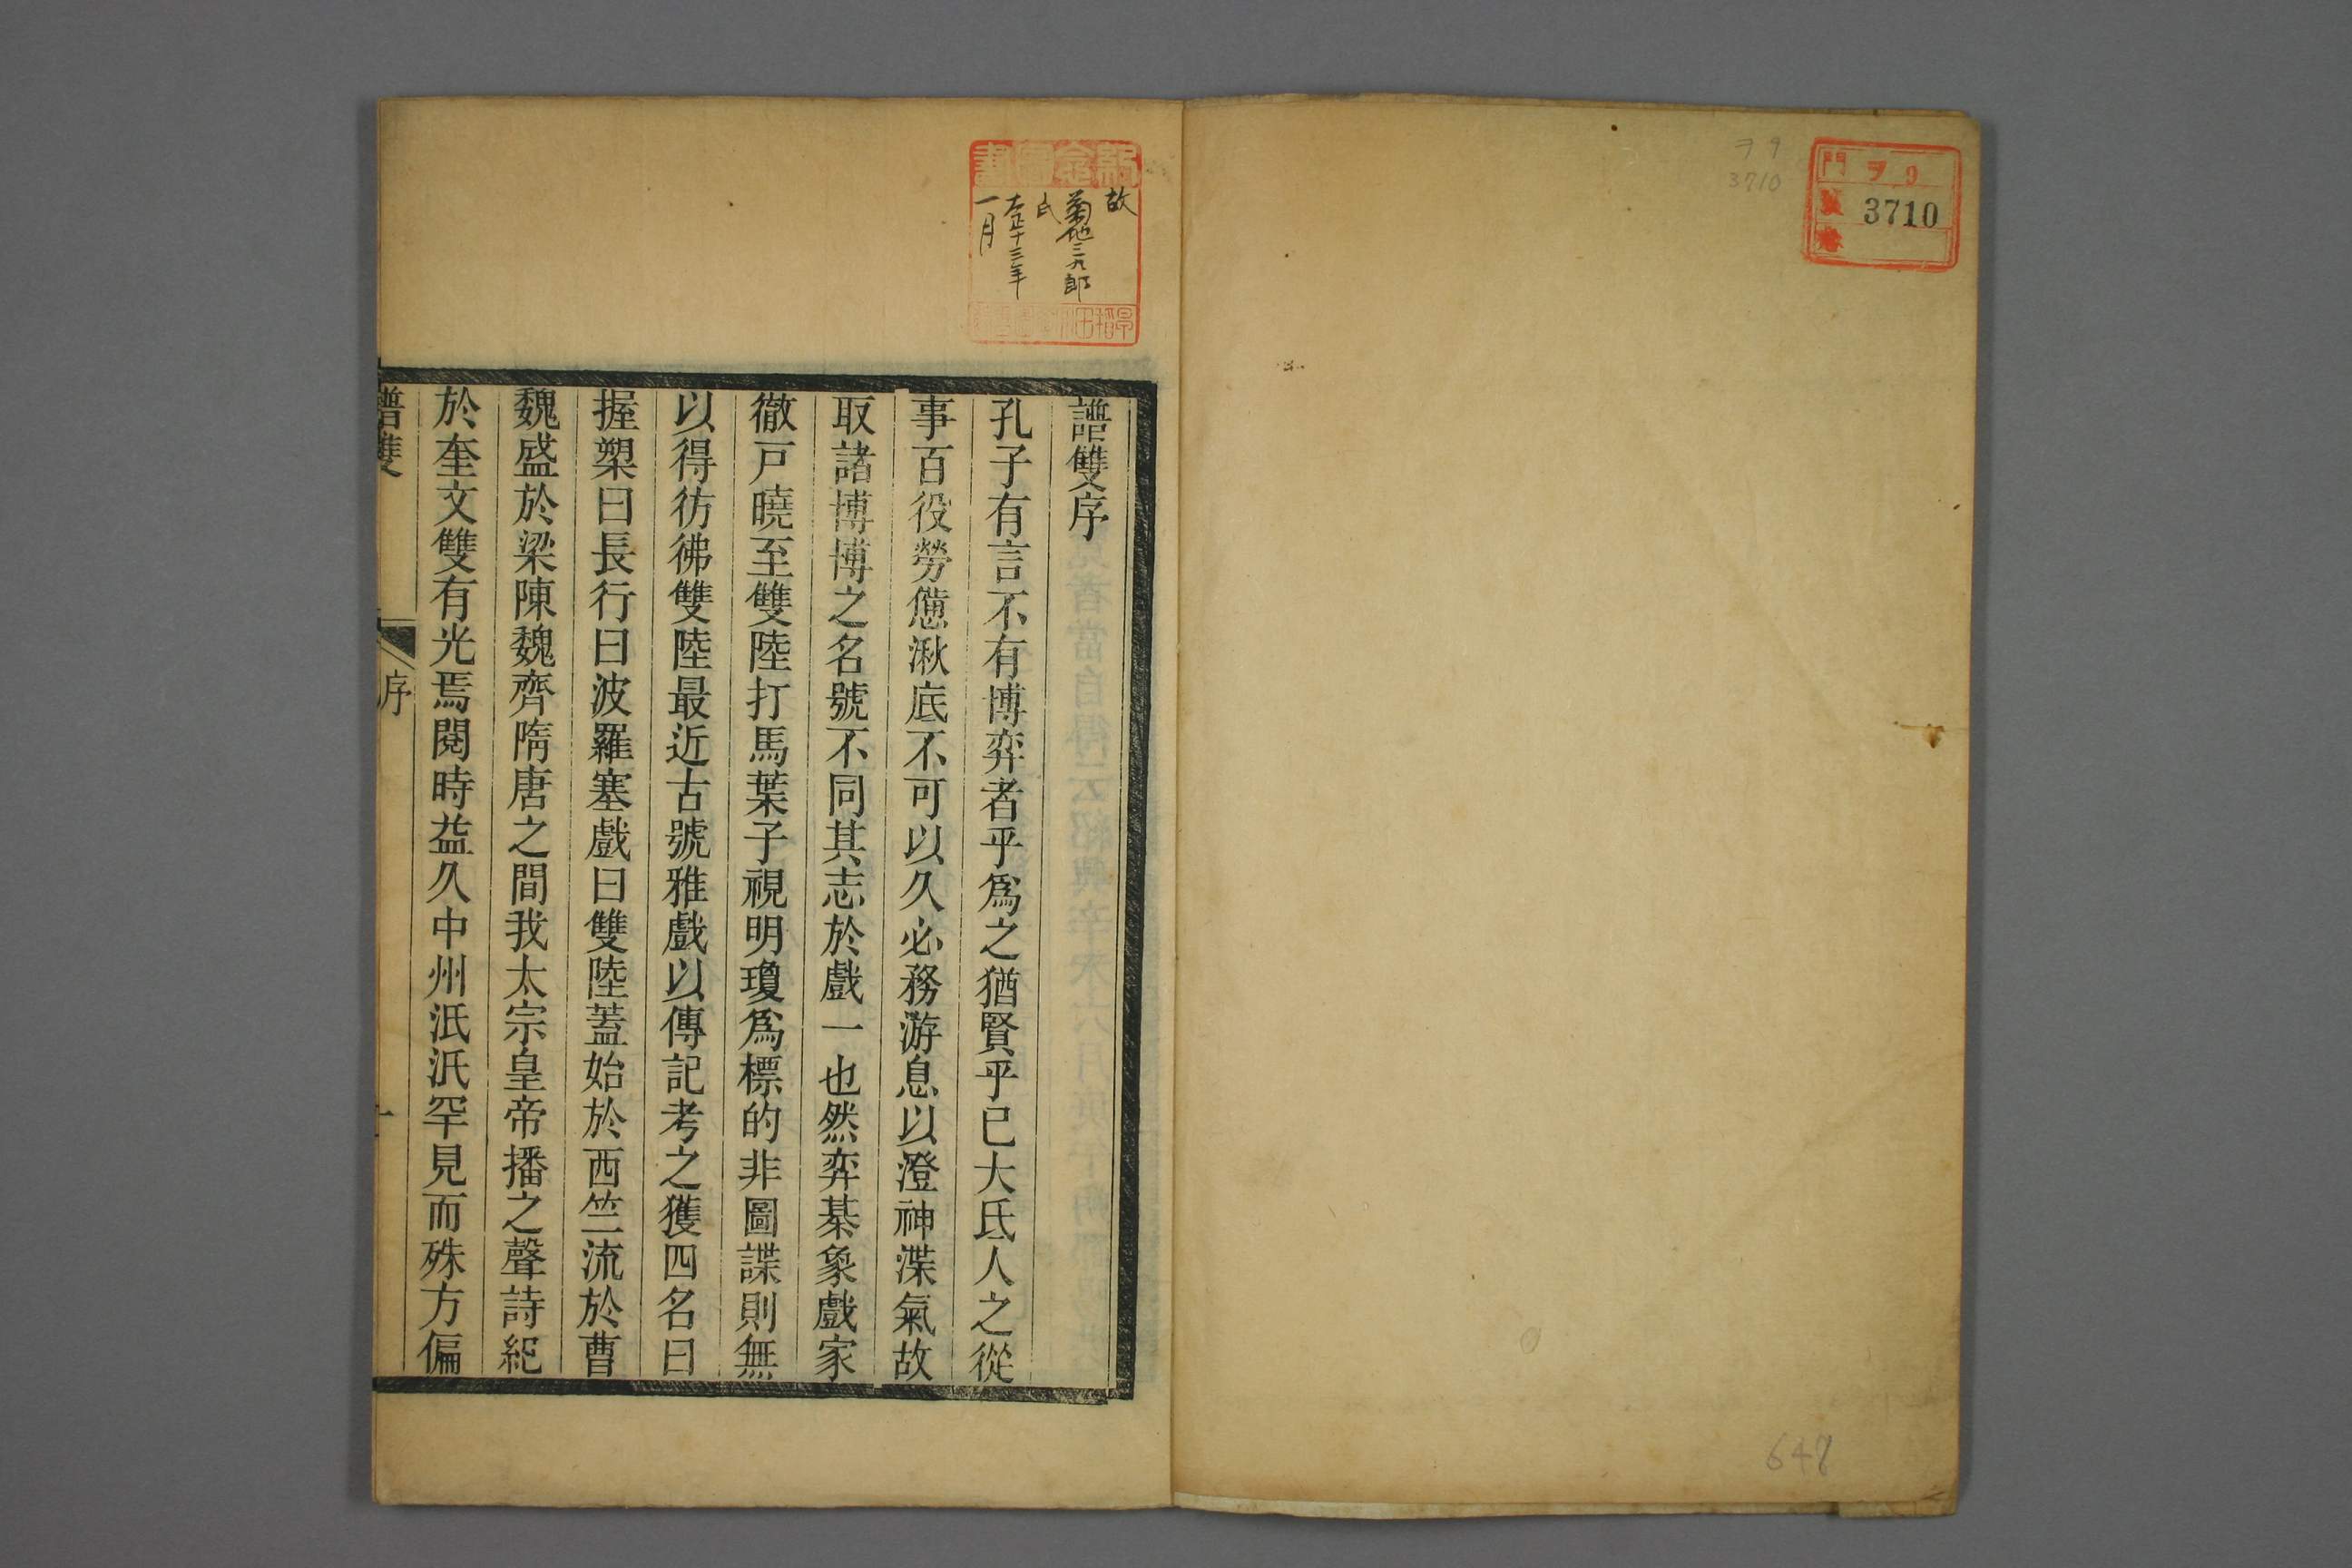 門 ヲ9
號 3710
卷
ヲ9
3710
648
故
菊池三九郎
氏
大正十三年
一月
譜雙序
孔子有言不有博弈者乎爲之猶賢乎已大氐人之從
事百役勞憊湫底不可以久必務游息以澄神渫氣故
取諸博博之名號不同其志於戲一也然弈棊象戲家
徹戸曉至雙陸打馬葉子視明瓊爲標的非圖諜則無
以得彷彿雙陸最近古號雅戲以傳記考之獲四名曰
握槊曰長行曰波羅塞戲曰雙陸蓋始於西竺流於曹
魏盛於梁陳魏齊隋唐之間我太宗皇帝播之聲詩紀
於奎文雙有光焉閱時益久中州泯泯罕見而殊方偏
譜雙
序
一